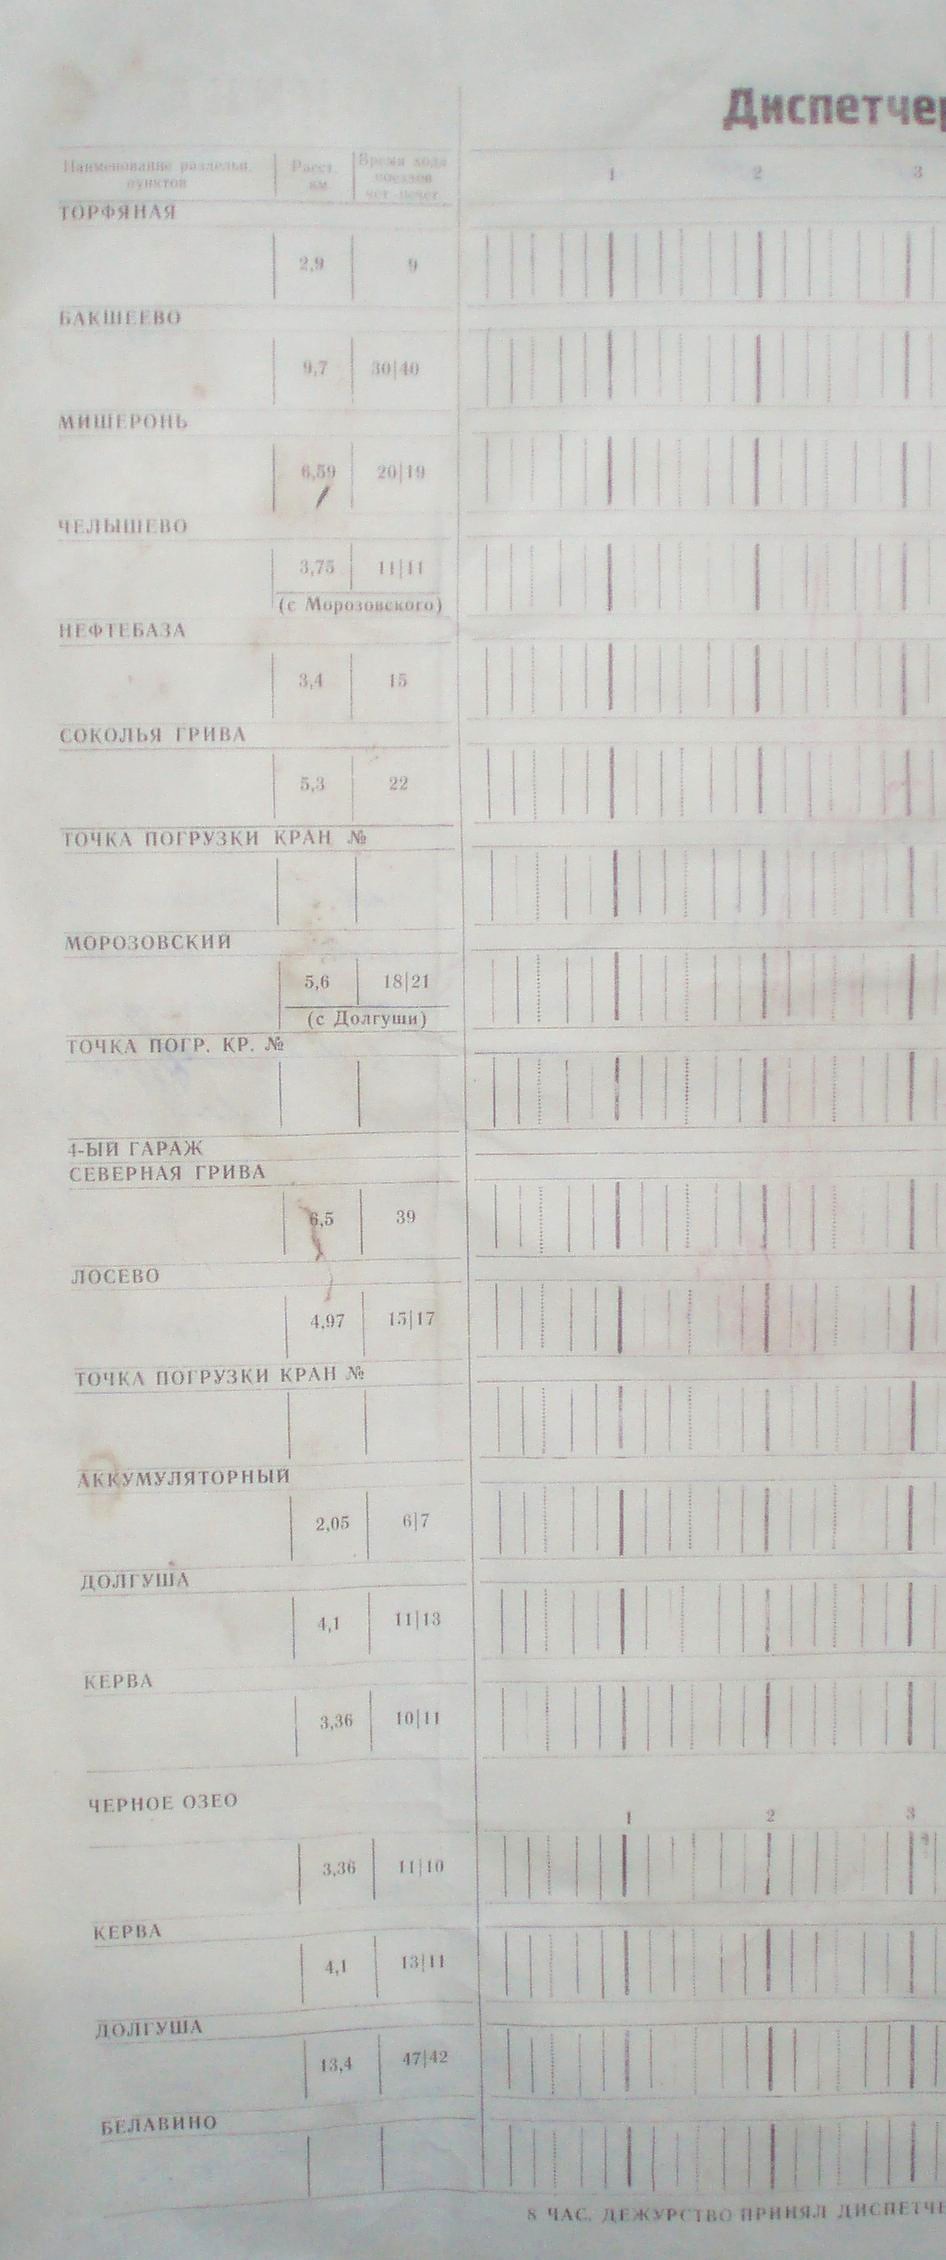 Диспетчер
Наименование раздельн. Расст. Время хода 1 2 3
пунктов км поездов
чет нечет
ТОРФЯНАЯ
2,9 9
БАКШЕЕВО
9,7 30|40
МИШЕРОНЬ
6,59 20|19
ЧЕЛЫШЕВО
3,75 11|11
(с Морозовского)
НЕФТЕБАЗА
3,4 15
СОКОЛЬЯ ГРИВА
5,3 22
ТОЧКА ПОГРУЗКИ КРАН №
МОРОЗОВСКИЙ
5,6 18|21
(с Долгуши)
ТОЧКА ПОГР. КР. №
4-ЫЙ ГАРАЖ
СЕВЕРНАЯ ГРИВА
6,5 39
ЛОСЕВО
4,97 15|17
ТОЧКА ПОГРУЗКИ КРАН №
АККУМУЛЯТОРНЫЙ
2,05 6|7
ДОЛГУША
4,1 11|13
КЕРВА
3,36 10|11
ЧЕРНОЕ ОЗЕО
1 2 3
3,36 11|10
КЕРВА
4,1 13|11
ДОЛГУША
13,4 47|42
БЕЛАВИНО
8 ЧАС. ДЕЖУРСТВО ПРИНЯЛ ДИСПЕТЧЕ